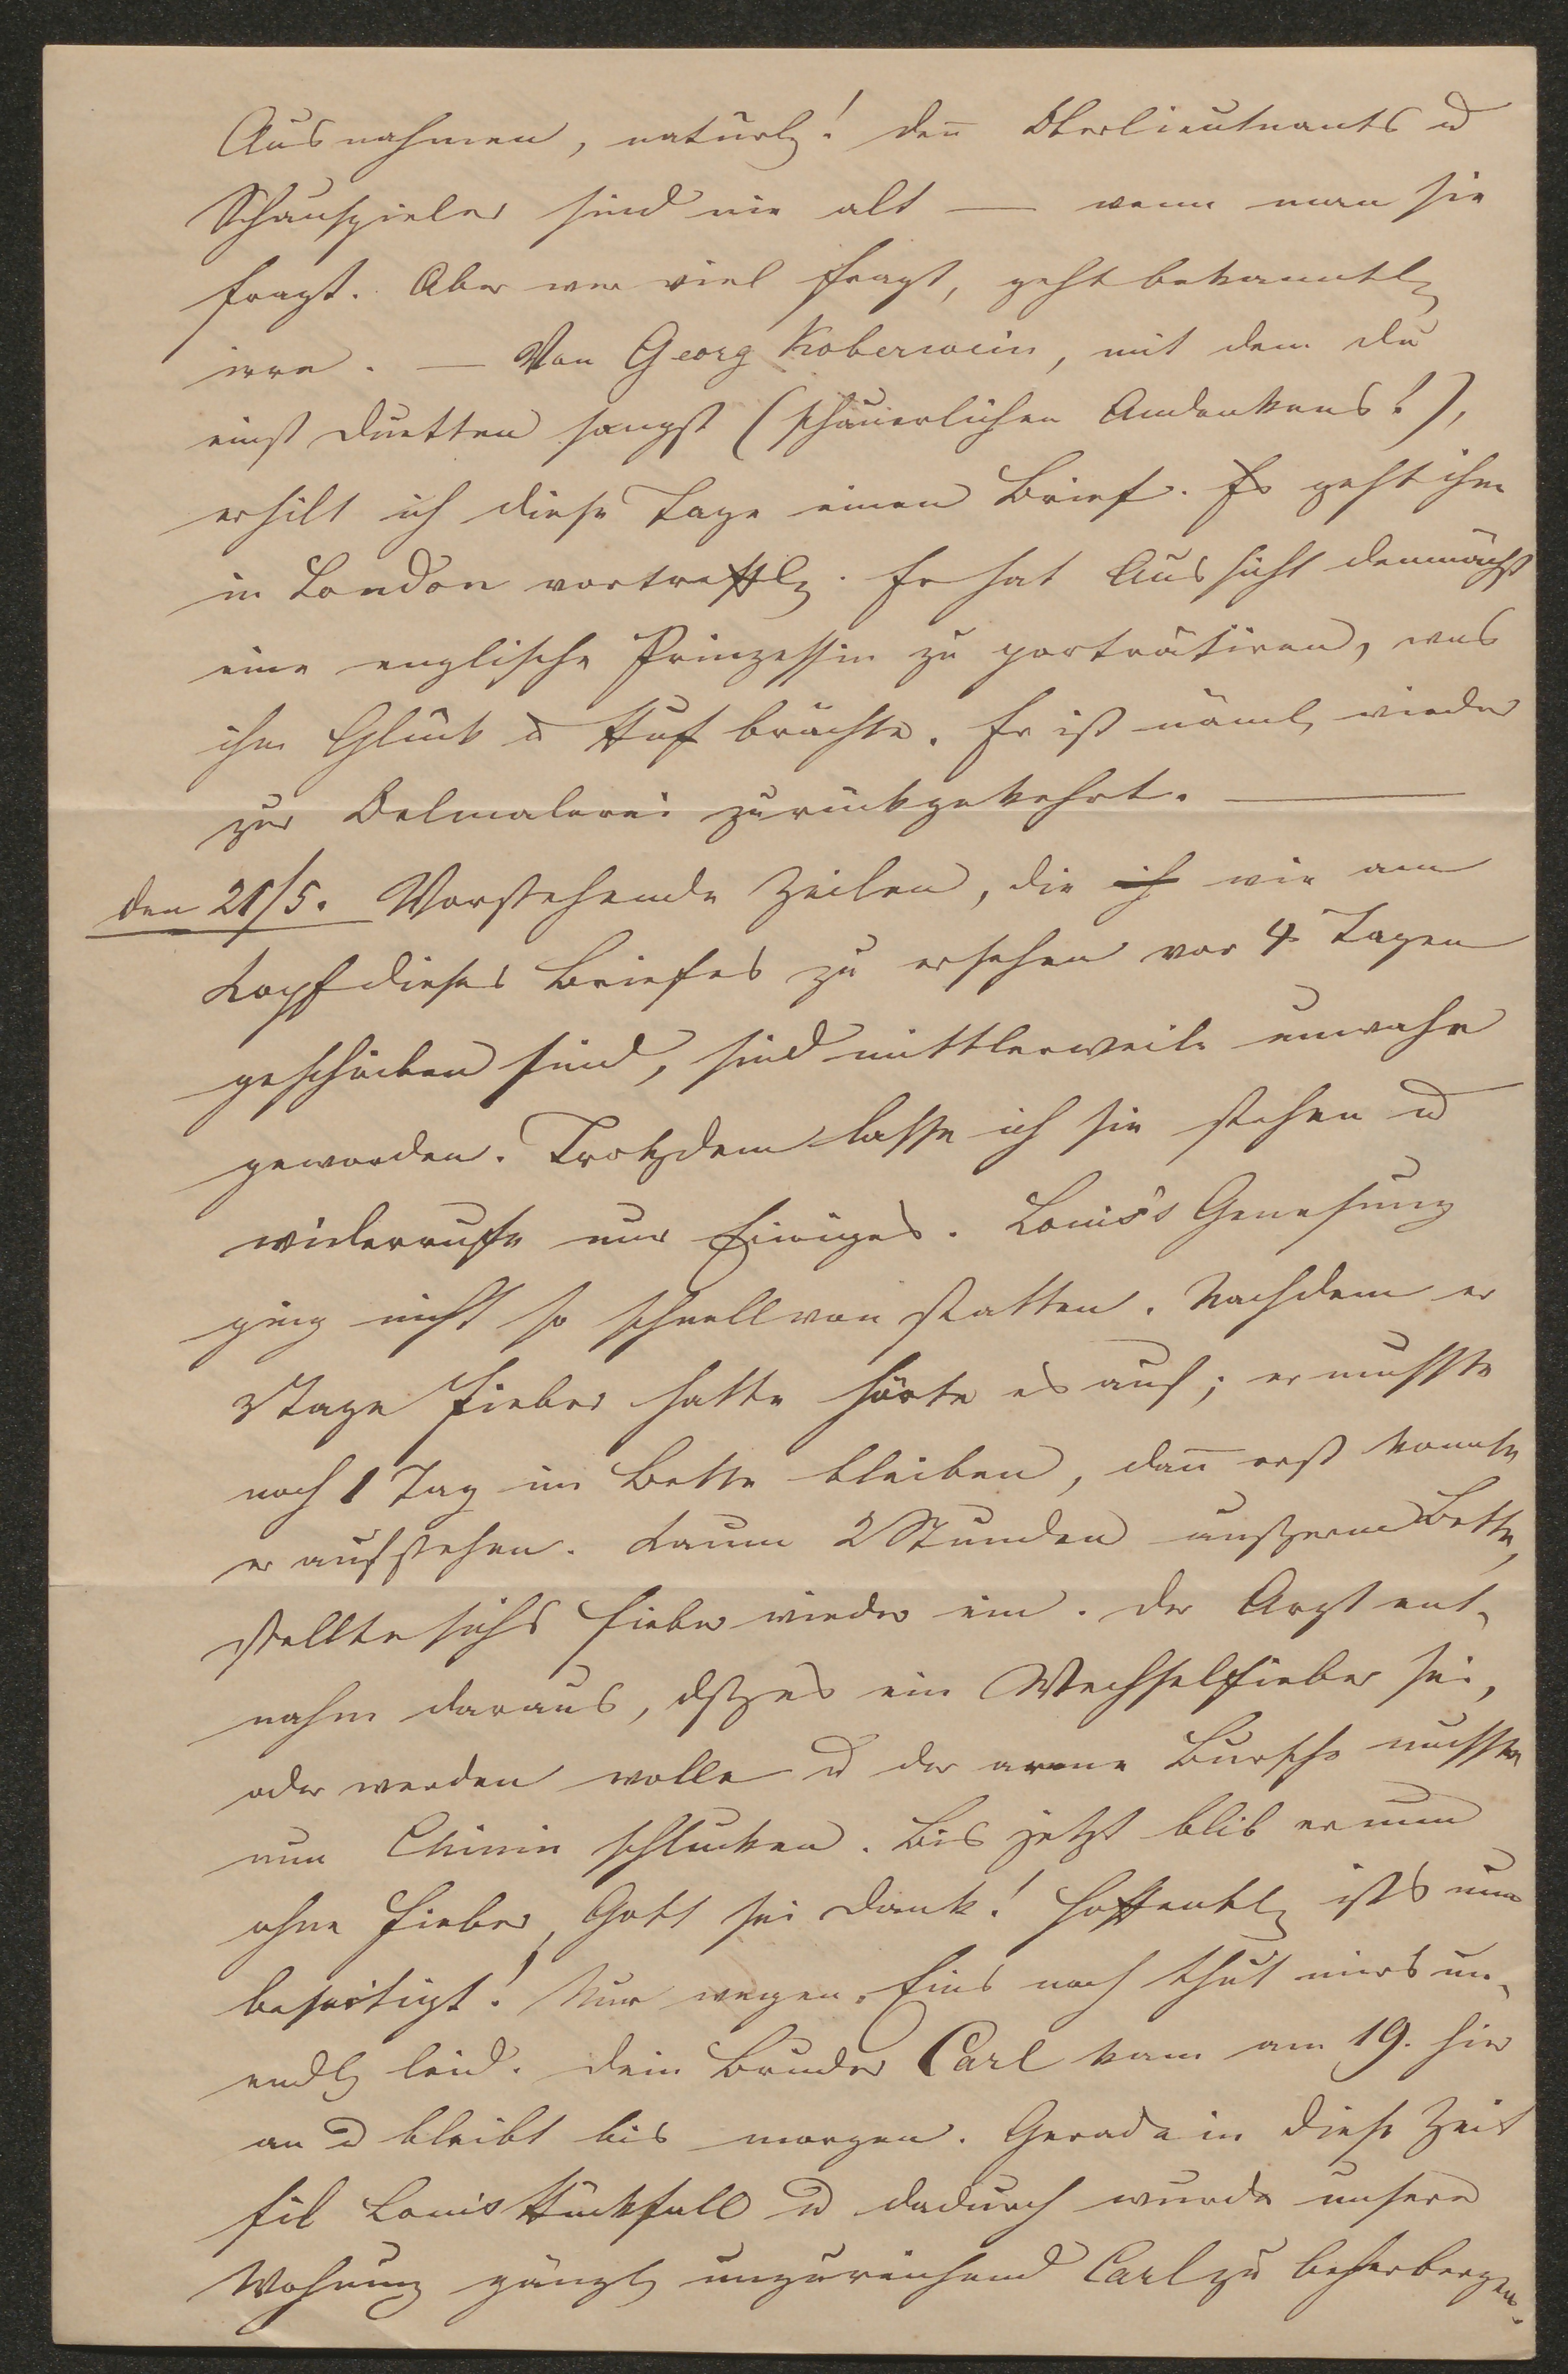 Ausnahmen, natürl! den̄ Oberlieutnants u
Schauspieler sind nie alt — wenn man sie
fragt. Aber wer viel fragt, geht bekanntl
irre. — Von Georg Koberwein, mit dem du
einst Duetten sangst (schauerlichen Andenkens!),
erhilt ich diese Tage einen Brief. Es geht ihm
in London vortreffl. Er hat Aussicht demnächst
eine englische Prinzessin zu porträtiren, was
ihm Glück u Ruf brächte. Er ist näml wieder
zur Oelmalerei zurückgekehrt. —
den 21/5. Vorstehende Zeilen, die ich wie am
Kopf dieses Briefes zu ersehen vor 4 Tagen
geschrieben sind, sind mittlerweile unwahr
geworden. Trotzdem lasse ich sie stehen u
widerrufe nur Einiges. Louis's Genesung
ging nicht so schnell von statten. Nachdem er
3 Tage Fieber hatte hörte es auf; er musste
noch 1 Tag im Bette bleiben, dan̄ erst konnte
er aufstehen. Kaum 2 Stunden außerm Bette,
stellte sichs Fieber wieder ein. Der Arzt ent-
nahm daraus, dß es ein Wechselfieber sei,
oder werden wolle u der arme Bursche musste
nun Chinin schlucken. Bis jetzt blib er nun
ohne Fieber, Gott sei Dank! Hoffentl ists nun
beseitigt! Nur wegen Eins noch thut mirs un-
endl leid. Dein Bruder Carl kam am 19. hier
an u bleibt bis morgen. Gerade in diese Zeit
fil Louis Rückfall u dadurch wurde unsere
Wohnung gänzl unzureichend Carl zu beherbergen.